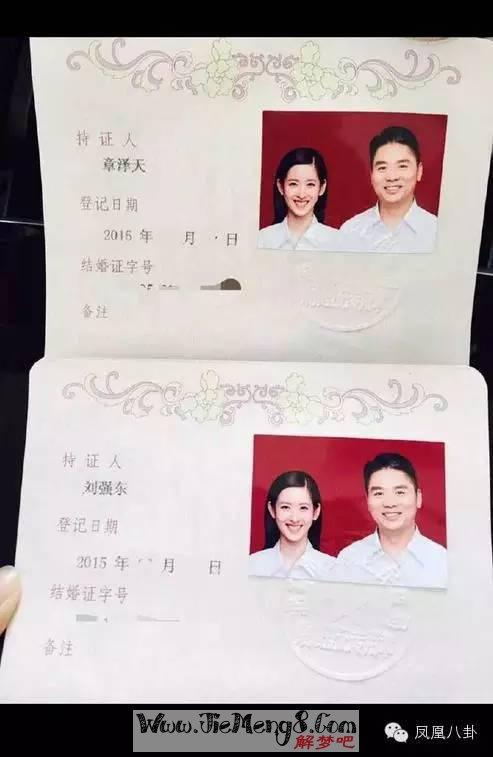 持证人
章泽天
登记日期
2015 年 月 日
结婚证字号
备注
持证人
刘强东
登记日期
2015 年 月 日
结婚证字号
备注
Www.JieMeng8.Com
解梦吧
凤凰八卦